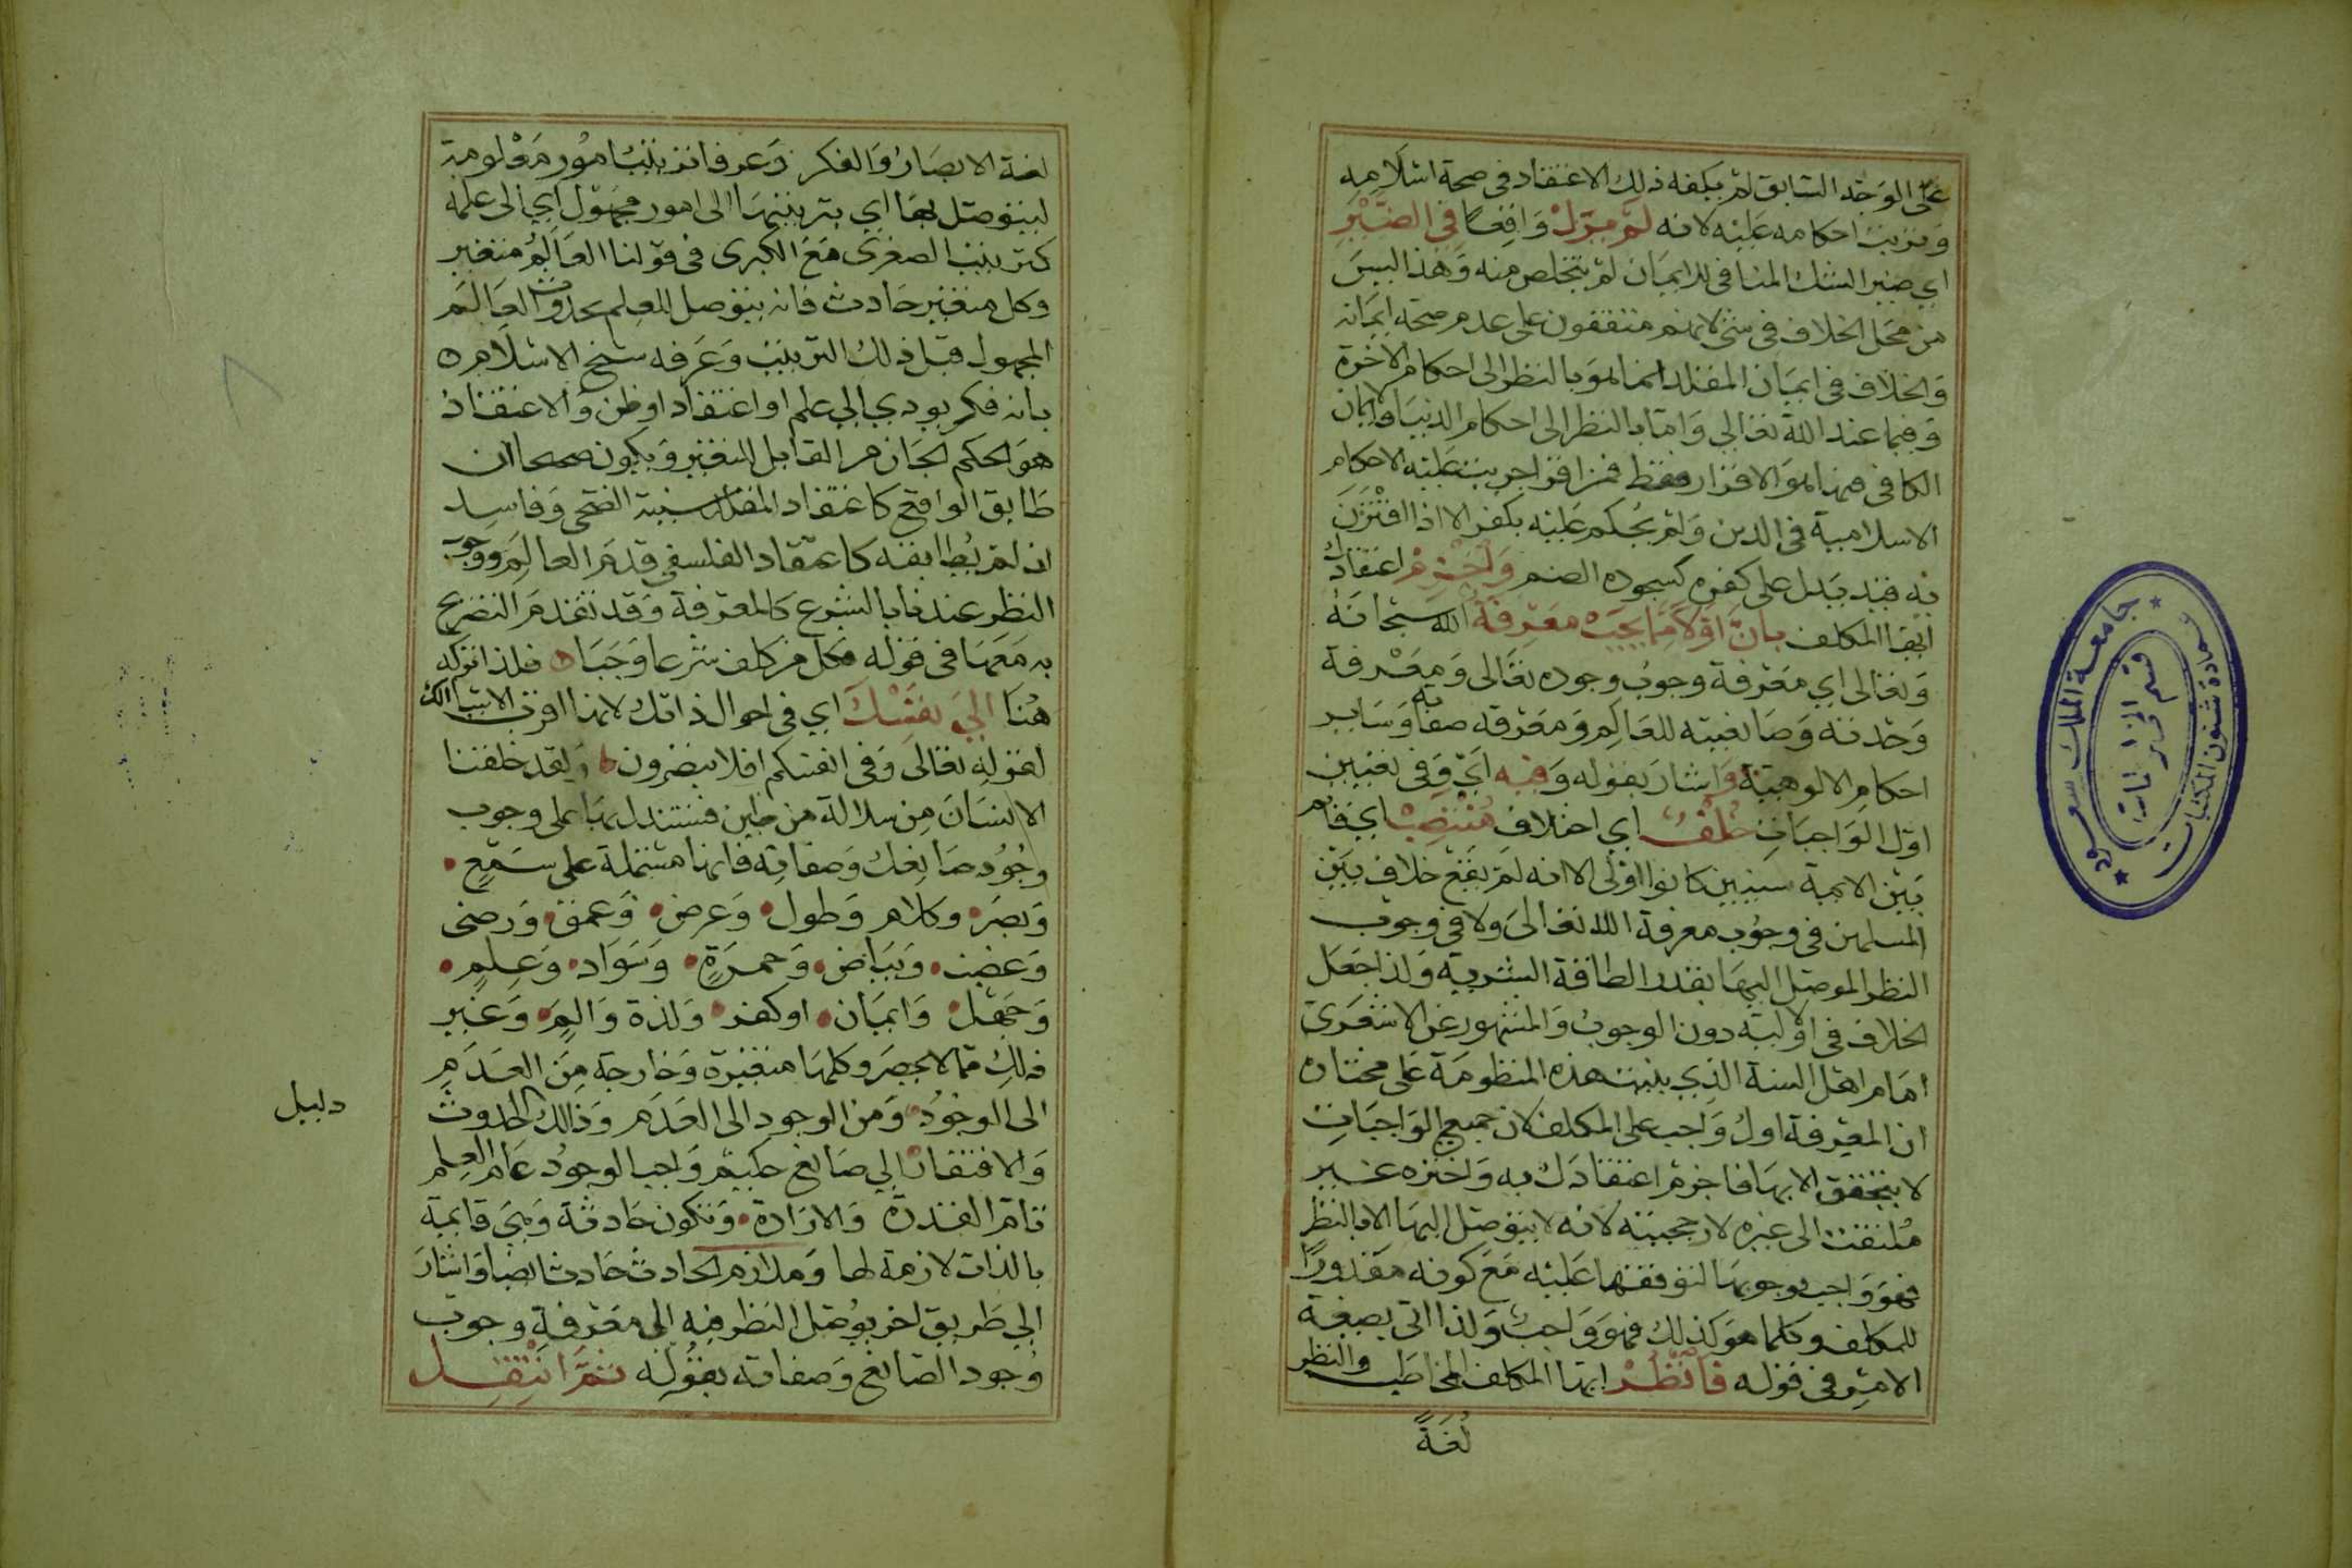 على الوجه السابق لم يكفه ذلك الاعتقاد في صحة اسلامه
وترتيب احكامه عليه لانه لَمْ يَزَلْ وَاقِعًا فِي الضَّيْرِ
اي ضير الشك المنافي للايمان لم يتخلص منه وهذا ليس
من محل الخلاف في شئ لانهم متفقون على عدم صحة ايمانه
والخلاف في ايمان المقلد انما هو بالنظر الى احكام الاخرة
وفيما عند الله تعالى واما بالنظر الى احكام الدنيا فالايمان
الكافي فيها هو الاقرار فقط فمن اقر اجريت عليه الاحكام
الاسلامية في الدين ولم يُحكم عليه بكفر الا اذا اقْتَرَنَ
به فيند يدل على كفره كسجوده الصنم وَاجْزِمْ اعتقادك
ايها المكلف بانَّ اوَّلًا مِمَّا يَجِبُ مَعْرِفَةُ الله سبحانه
وتعالى اي معرفة وجوب وجوده تعالى ومعرفة
وحدته وصانعيته للعالم ومعرفة صفاته وساير
احكام الالوهية واشار بقوله وَفِيهِ اي وفي تعيين
اول الواجبات خُلْفٌ اي اختلاف مُنْتَصِبْ اي قائم
بين الايمة سنيين كانوا اولى الا انه لم يقع خلاف بين
المسلمين في وجوب معرفة الله تعالى ولا في وجوب
النظر الموصل اليها بقدر الطاقة البشرية ولذا جعل
الخلاف في الاولية دون الوجوب والمشهور عن الاشعري
امام اهل السنة الذي بنيت هذه المنظومة على مختاره
ان المعرفة اول واجب على المكلف لان جميع الواجبات
لا يتحقق الا بها فاجزم اعتقادك به واختره غير
مُلتفت الى غيره لارجحيته لانه لا يتوصل اليها الا بالنظر
فهو واجب بوجوبها لتوقفها عليه مع كونه مقدورًا
للمكلف وكلما هو كذلك فهو واجبٌ ولذا اتى بصيغة
الامر في قوله فَانْظُرْ ايها المكلف المخاطب والنظر
لُغَةً
لغة الابصارُ والفكر وعرفا ترتيبُ امُور معْلومة
ليتوصل بها اي بترتيبها الى امور مجهول اي الى علمه
كترتيب الصغرى مع الكبرى في قولنا العالمُ متغير
وكل متغير حادث فانه يتوصل للعلم بحدوث العالم
المجهول قبل ذلك الترتيب وعرفه شيخ الاسلام ٥
بانه فكر يودي الى علم او اعتقاد او ظن والاعتقادُ
هو الحكم الجازم القابل للتغير ويكون صحيحا ان
طابق الواقع كاعتقاد المقلد سنية الضحى وفاسد
ان لم يُطابقه كاعتقاد الفلسفي قدم العالم ووجوب
النظر عندنا بالشرع كالمعرفة وقد تقدم التصريح
به معها في قوله فكل من كلف شرعا وجبا فلذا تركه
هُنا الَى نَفْسِكَ اي في احوال ذاتك لانها اقرب الاشيا اليك
لقوله تعالى وفي انفسكم افلا تبصرون ولقد خلقنا
الانسان من سلالة من طين فتستدل بها على وجوب
وجُود صانعك وصفاته فانها مشتملة على سمع
وبصر وكلام وطول وعرض وعمق ورضى
وغضب وبياض وحمرة وسواد وعلم
وجهل وايمان او كفر ولذة والم وغير
ذلك مما لا يحصر وكلها متغيرة وخارجة من العدم
الى الوجود ومن الوجود الى العدم وذلك الحدوث
والافتقار الى صانع حكيم واجب الوجود عام العلم
تام القدرة والارادة وتكون حادثة وهي قايمة
بالذات لازمة لها وملازم الحادث حادث ايضا واشار
الى طريق اخر يوصل النظر فيه الى معرفة وجوب
وجود الصانع وصفاته بقوله ثمَّ انْتَقِلِ
دليل
جامعة الملك سعود
عمادة شئون المكتبات
قسم المخطوطات